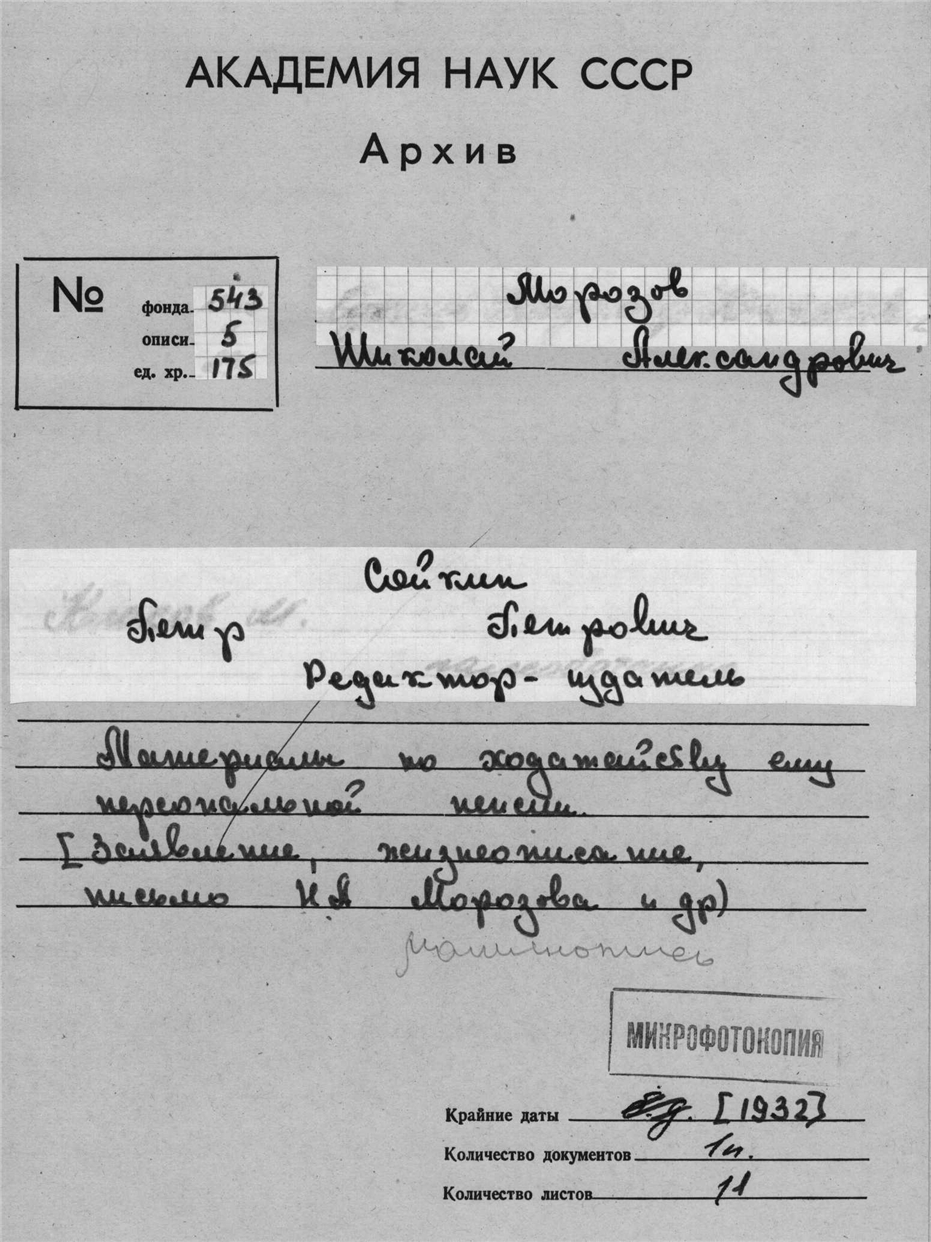 АКАДЕМИЯ НАУК СССР
Архив
№
фонда 543
описи 5
ед. хр. 175
Морозов
Николай Александрович
Сойкин
Петр Петрович
Редактор-издатель
Материалы по ходатайству ему
персональной пенсии.
[Заявление, жизнеописание,
письмо НА Морозова и др)
машинопись
МИКРОФОТОКОПИЯ
Крайние даты [1932]
Количество документов 1п.
Количество листов